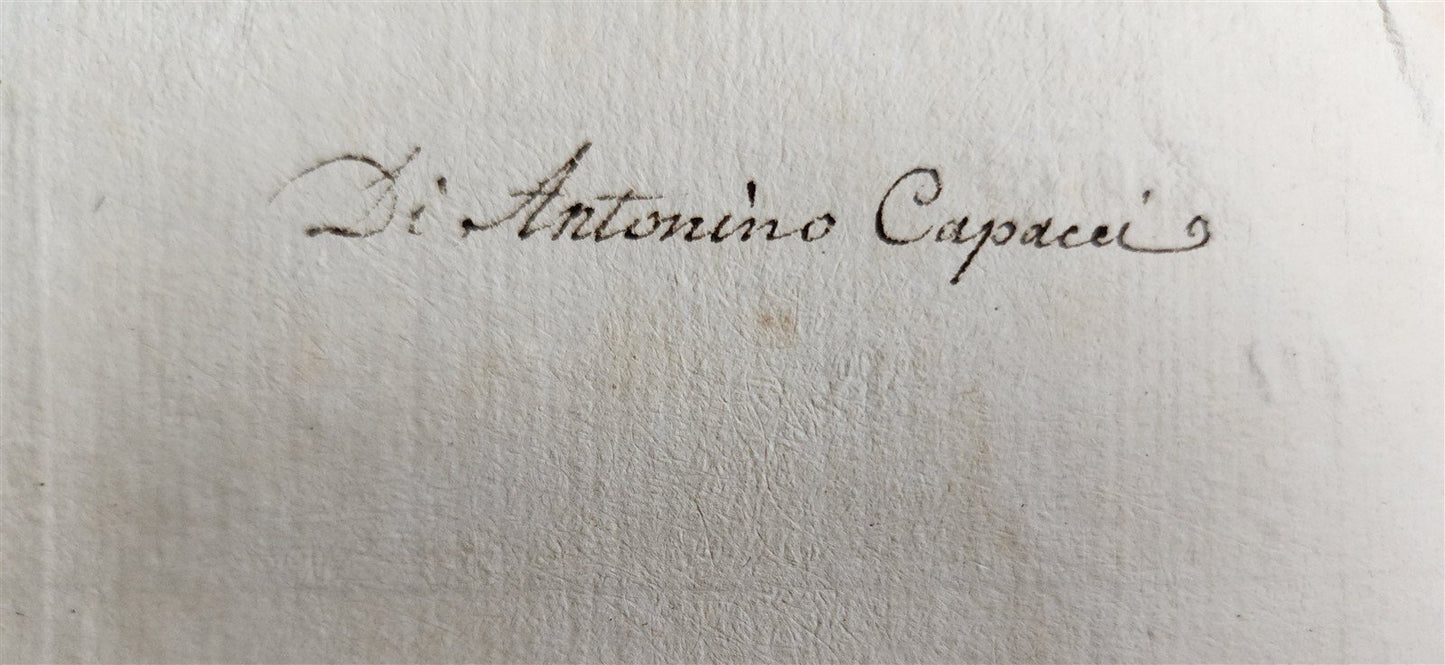 Di Antonino Capacci